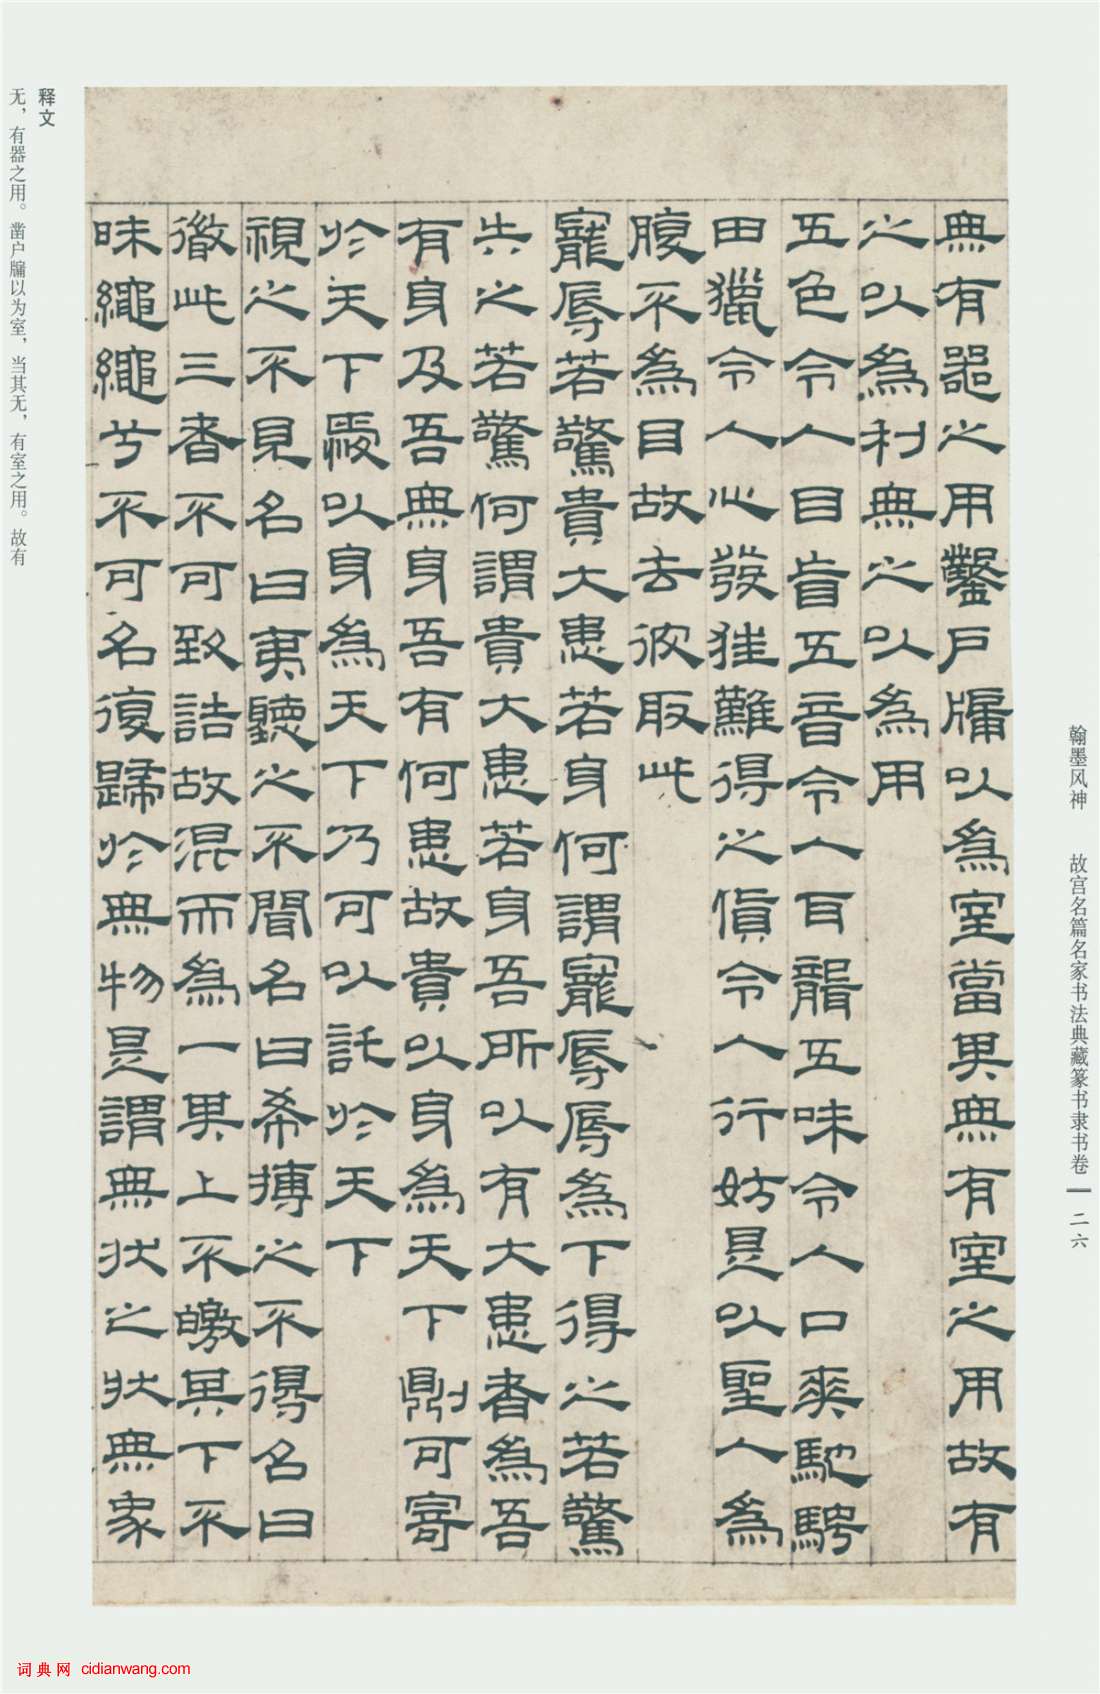 翰墨风神 故宫名篇名家书法典藏篆书隶书卷 二六
無有器之用鑿戶牖以為室當其無有室之用故有
之以為利無之以為用
五色令人目盲五音令人耳聾五味令人口爽馳騁
田獵令人心發狂難得之貨令人行妨是以聖人為
腹不為目故去彼取此
寵辱若驚貴大患若身何謂寵辱辱為下得之若驚
失之若驚何謂貴大患若身吾所以有大患者為吾
有身及吾無身吾有何患故貴以身為天下則可寄
於天下愛以身為天下乃可以託於天下
視之不見名曰夷聽之不聞名曰希搏之不得名曰
微此三者不可致詰故混而為一其上不皦其下不
昧繩繩兮不可名復歸於無物是謂無狀之狀無象
释文
无，有器之用。凿户牖以为室，当其无，有室之用。故有
词典网 cidianwang.com